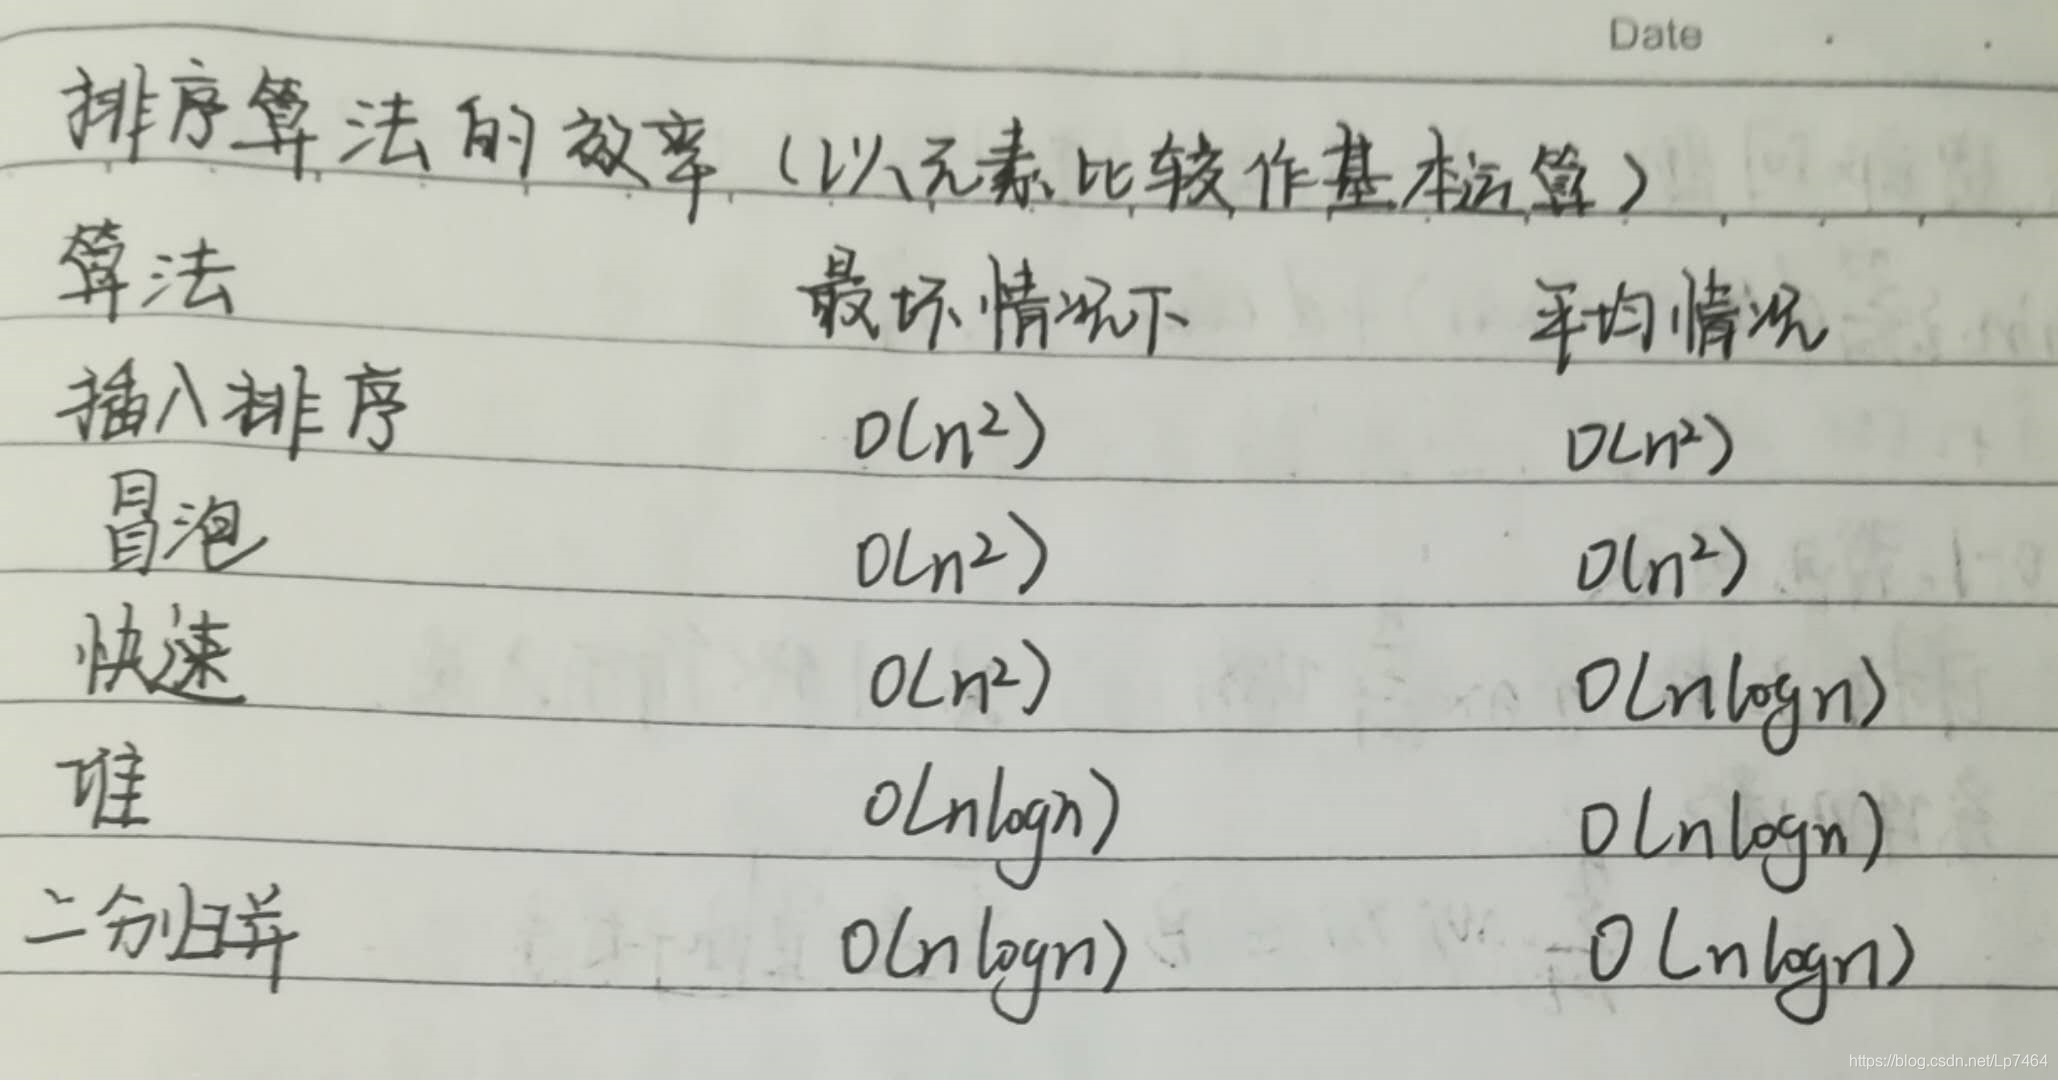 Date
排序算法的效率（以元素比较作基本运算）
算法 最坏情况下 平均情况
插入排序 O(n²) O(n²)
冒泡 O(n²) O(n²)
快速 O(n²) O(nlogn)
堆 O(nlogn) O(nlogn)
二分归并 O(nlogn) O(nlogn)
https://blog.csdn.net/Lp7464